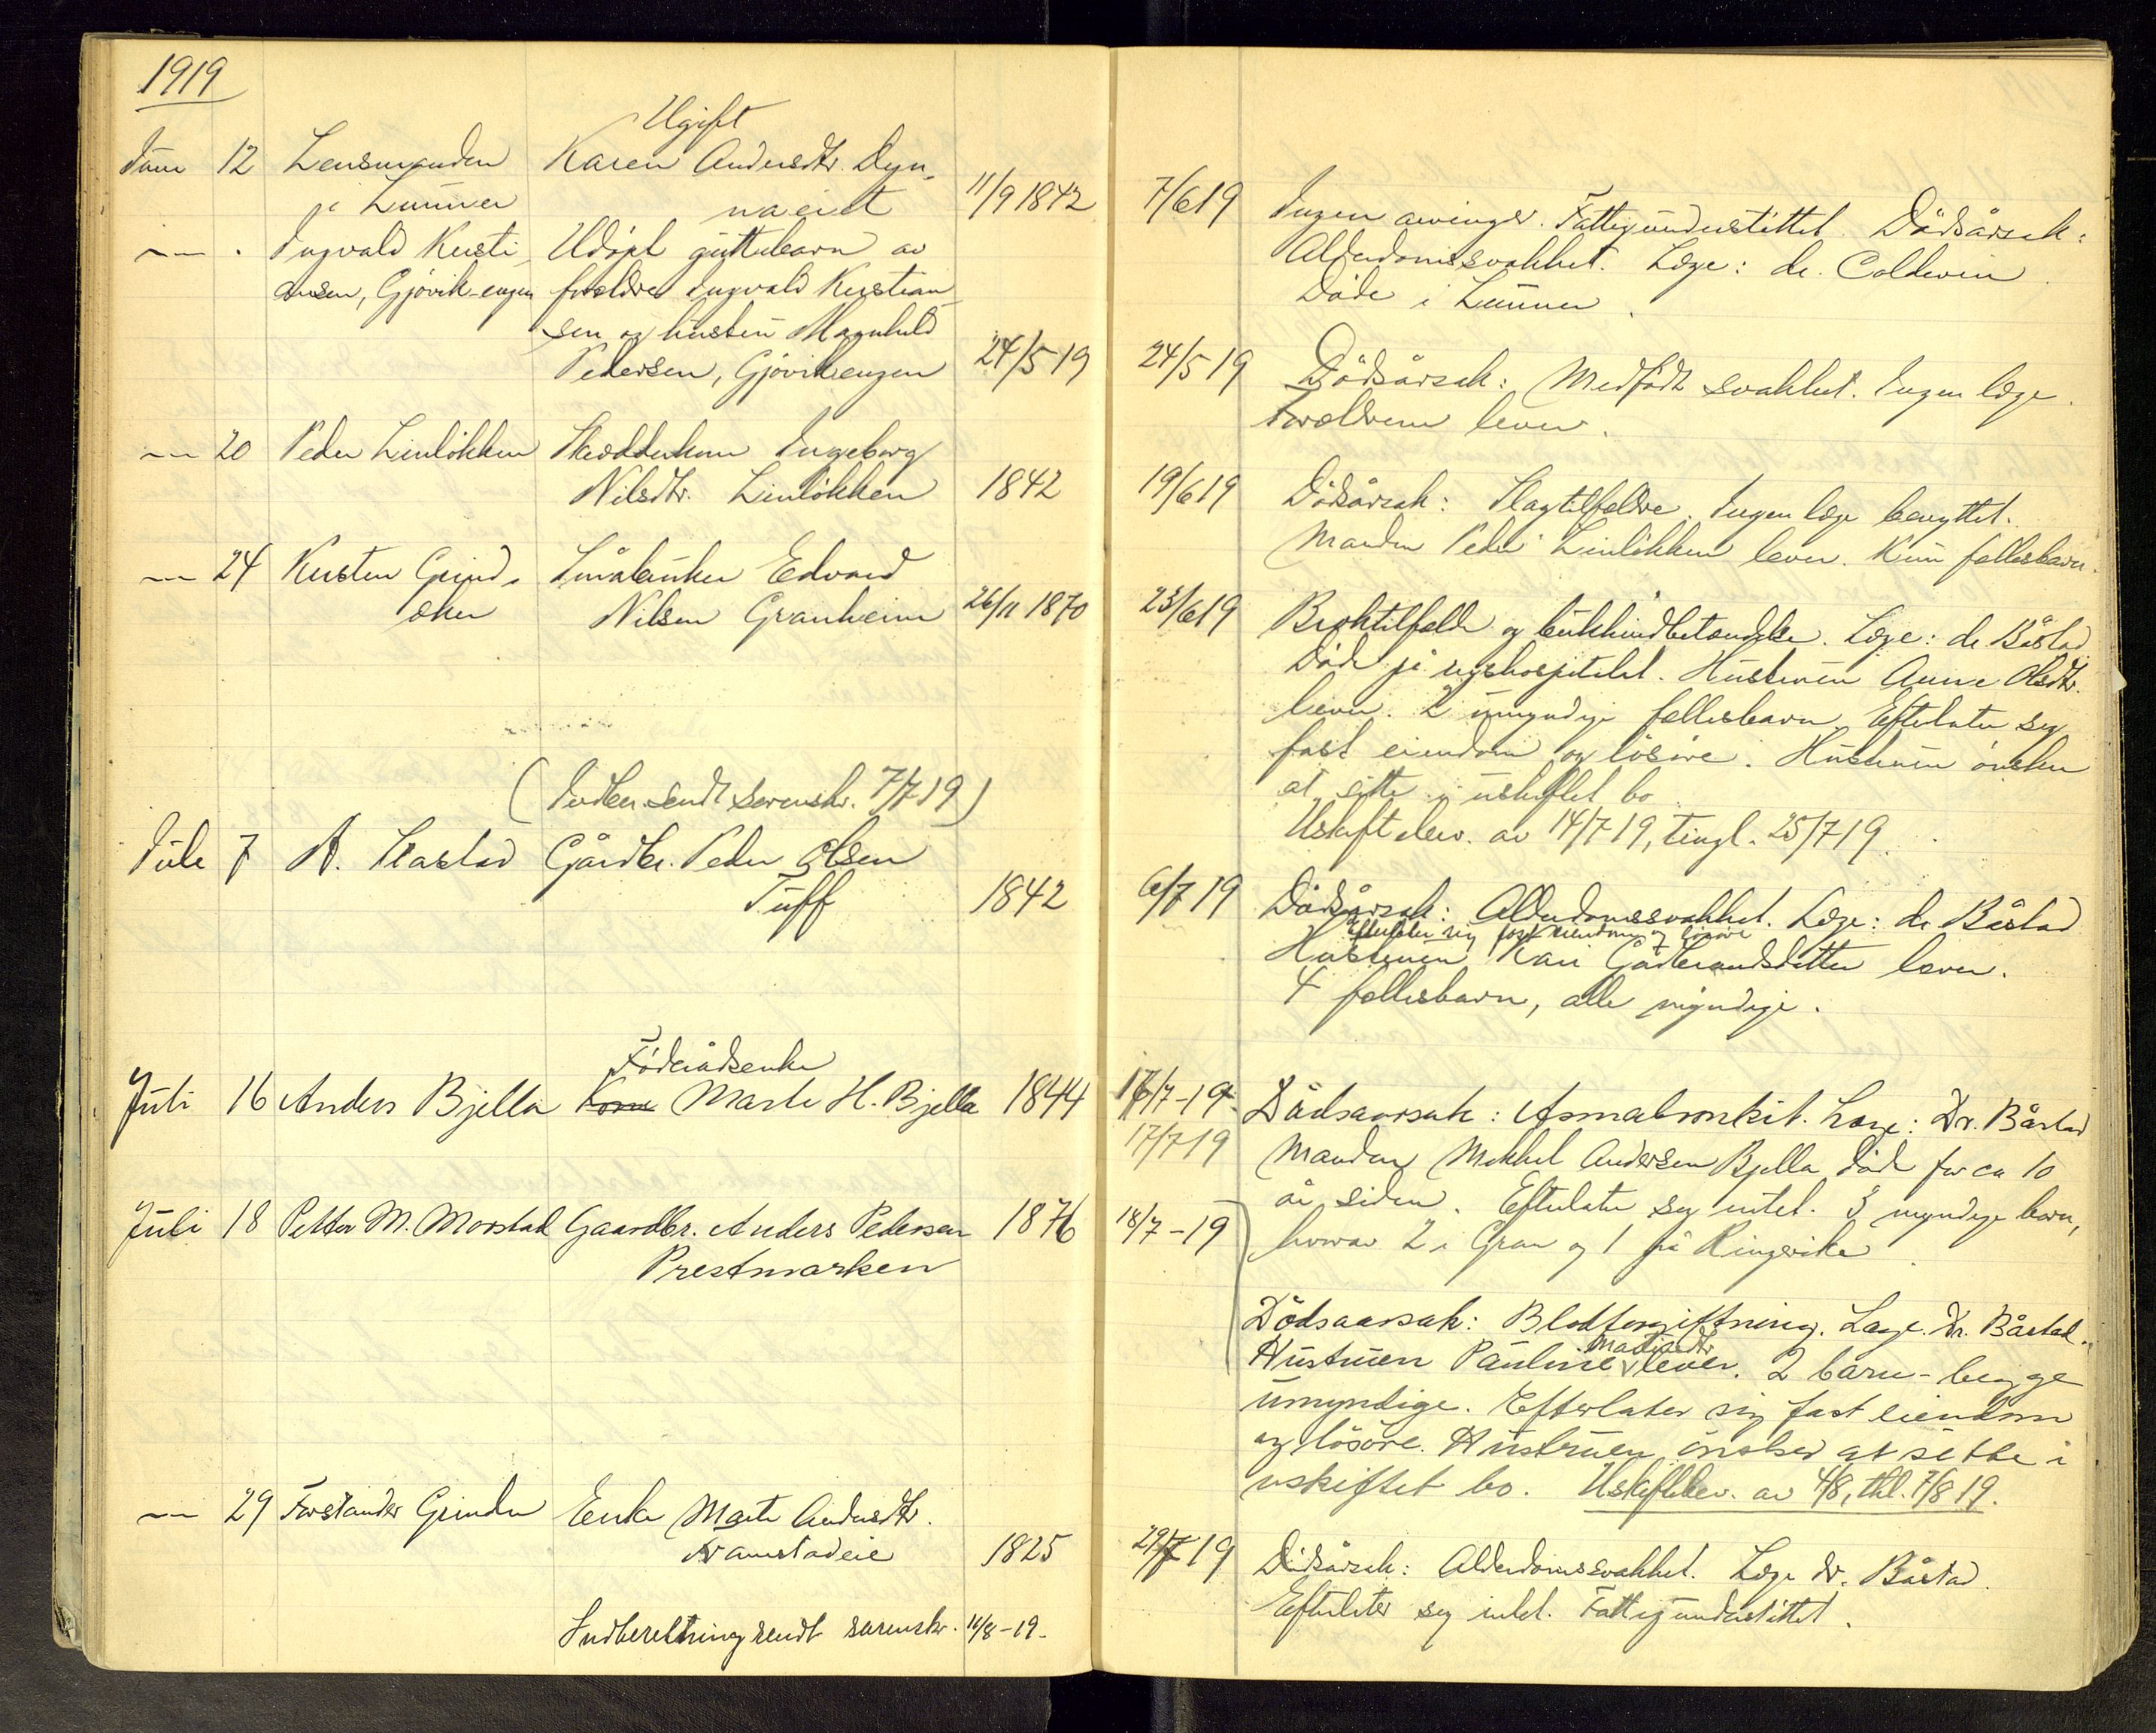 1919
Ugift
Juni 12 Lensmanden Karen Andersdtr. Dyn-
i Lunner naeiet 11/9 1842
" - Ingvald Kristi- Udöpt guttebarn av
ansen, Gjövik-engen forældre Ingvald Kristian-
sen og hustru Magnhild
Pedersen, Gjövikengen 24/5 19
" 20 Peder Linlökken Skredderkone Ingeborg
Nilsdtr. Linlökken 1842
" 24 Kristen Grind- Småbruker Edvard
aker Nilsen Granheim 26/11 1870
(Indber. sendt sorenskr. 7/7 19)
Juli 7 A. Stastad Gårdbr. Peder Olsen
Tuff 1842
Föderådsenke
Juli 16 Anders Bjella Kone Marte H. Bjella 1844
Juli 18 Petter M. Morstad Gaardbr. Anders Pedersen 1876
Prestmarken
" 29 Forstander Grinden Enke Marte Andersdtr.
Framstadeie 1825
Indberetning sendt sorenskr. 11/8-19.
7/6 19 Ingen arvinger. Fattigunderstöttet. Dödsårsak:
Alderdomssvakhet. Læge: dr. Coldevin
Döde i Lunner.
24/5 19 Dödsårsak: Medfödt svakhet. Ingen læge.
Forældrene lever.
19/6 19 Dödsårsak: Slagtilfælde. Ingen læge benyttet.
Manden Peder Linlökken lever. Kun fellesbarn.
23/6 19 Broktilfelde og bukhindbetændelse. Læge: dr. Båstad.
Död på rigshospitalet. Hustruen Anne Olsdtr.
lever. 2 umyndige fellesbarn. Efterlater seg
fast eiendom og lösöre. Hustruen önsker
at sitte i uskiftet bo.
Uskiftebev. av 14/7 19, tingl. 25/7 19.
6/7 19 Dödsårsak: Alderdomssvakhet. Læge: dr. Båstad
Efterlater sig fast eiendom og lösöre
Hustruen Kari Gudbrandsdatter lever.
4 fellesbarn, alle myndige.
16/7-19. Dödsaarsak: Asmabronkit. Læge: Dr. Båstad
17/7 19 Manden Mikkel Andersen Bjella död for ca 10
år siden. Efterlater seg intet. 3 myndige barn,
18/7-19 hvorav 2 i Gran og 1 på Ringerike.
Dödsaarsak: Blodforgiftning. Læge. Dr. Båstad.
Mathiasdtr
Hustruen Pauline lever. 2 barn - begge
umyndige. Efterlater sig fast eiendom
og lösöre. Hustruen önsker at sitte i
uskiftet bo. Uskiftebev. av 4/8, thl. 7/8 19.
29/7 19 Dödsårsak: Alderdomssvakhet. Læge dr. Båstad.
Efterlater seg intet. Fattigunderstöttet.